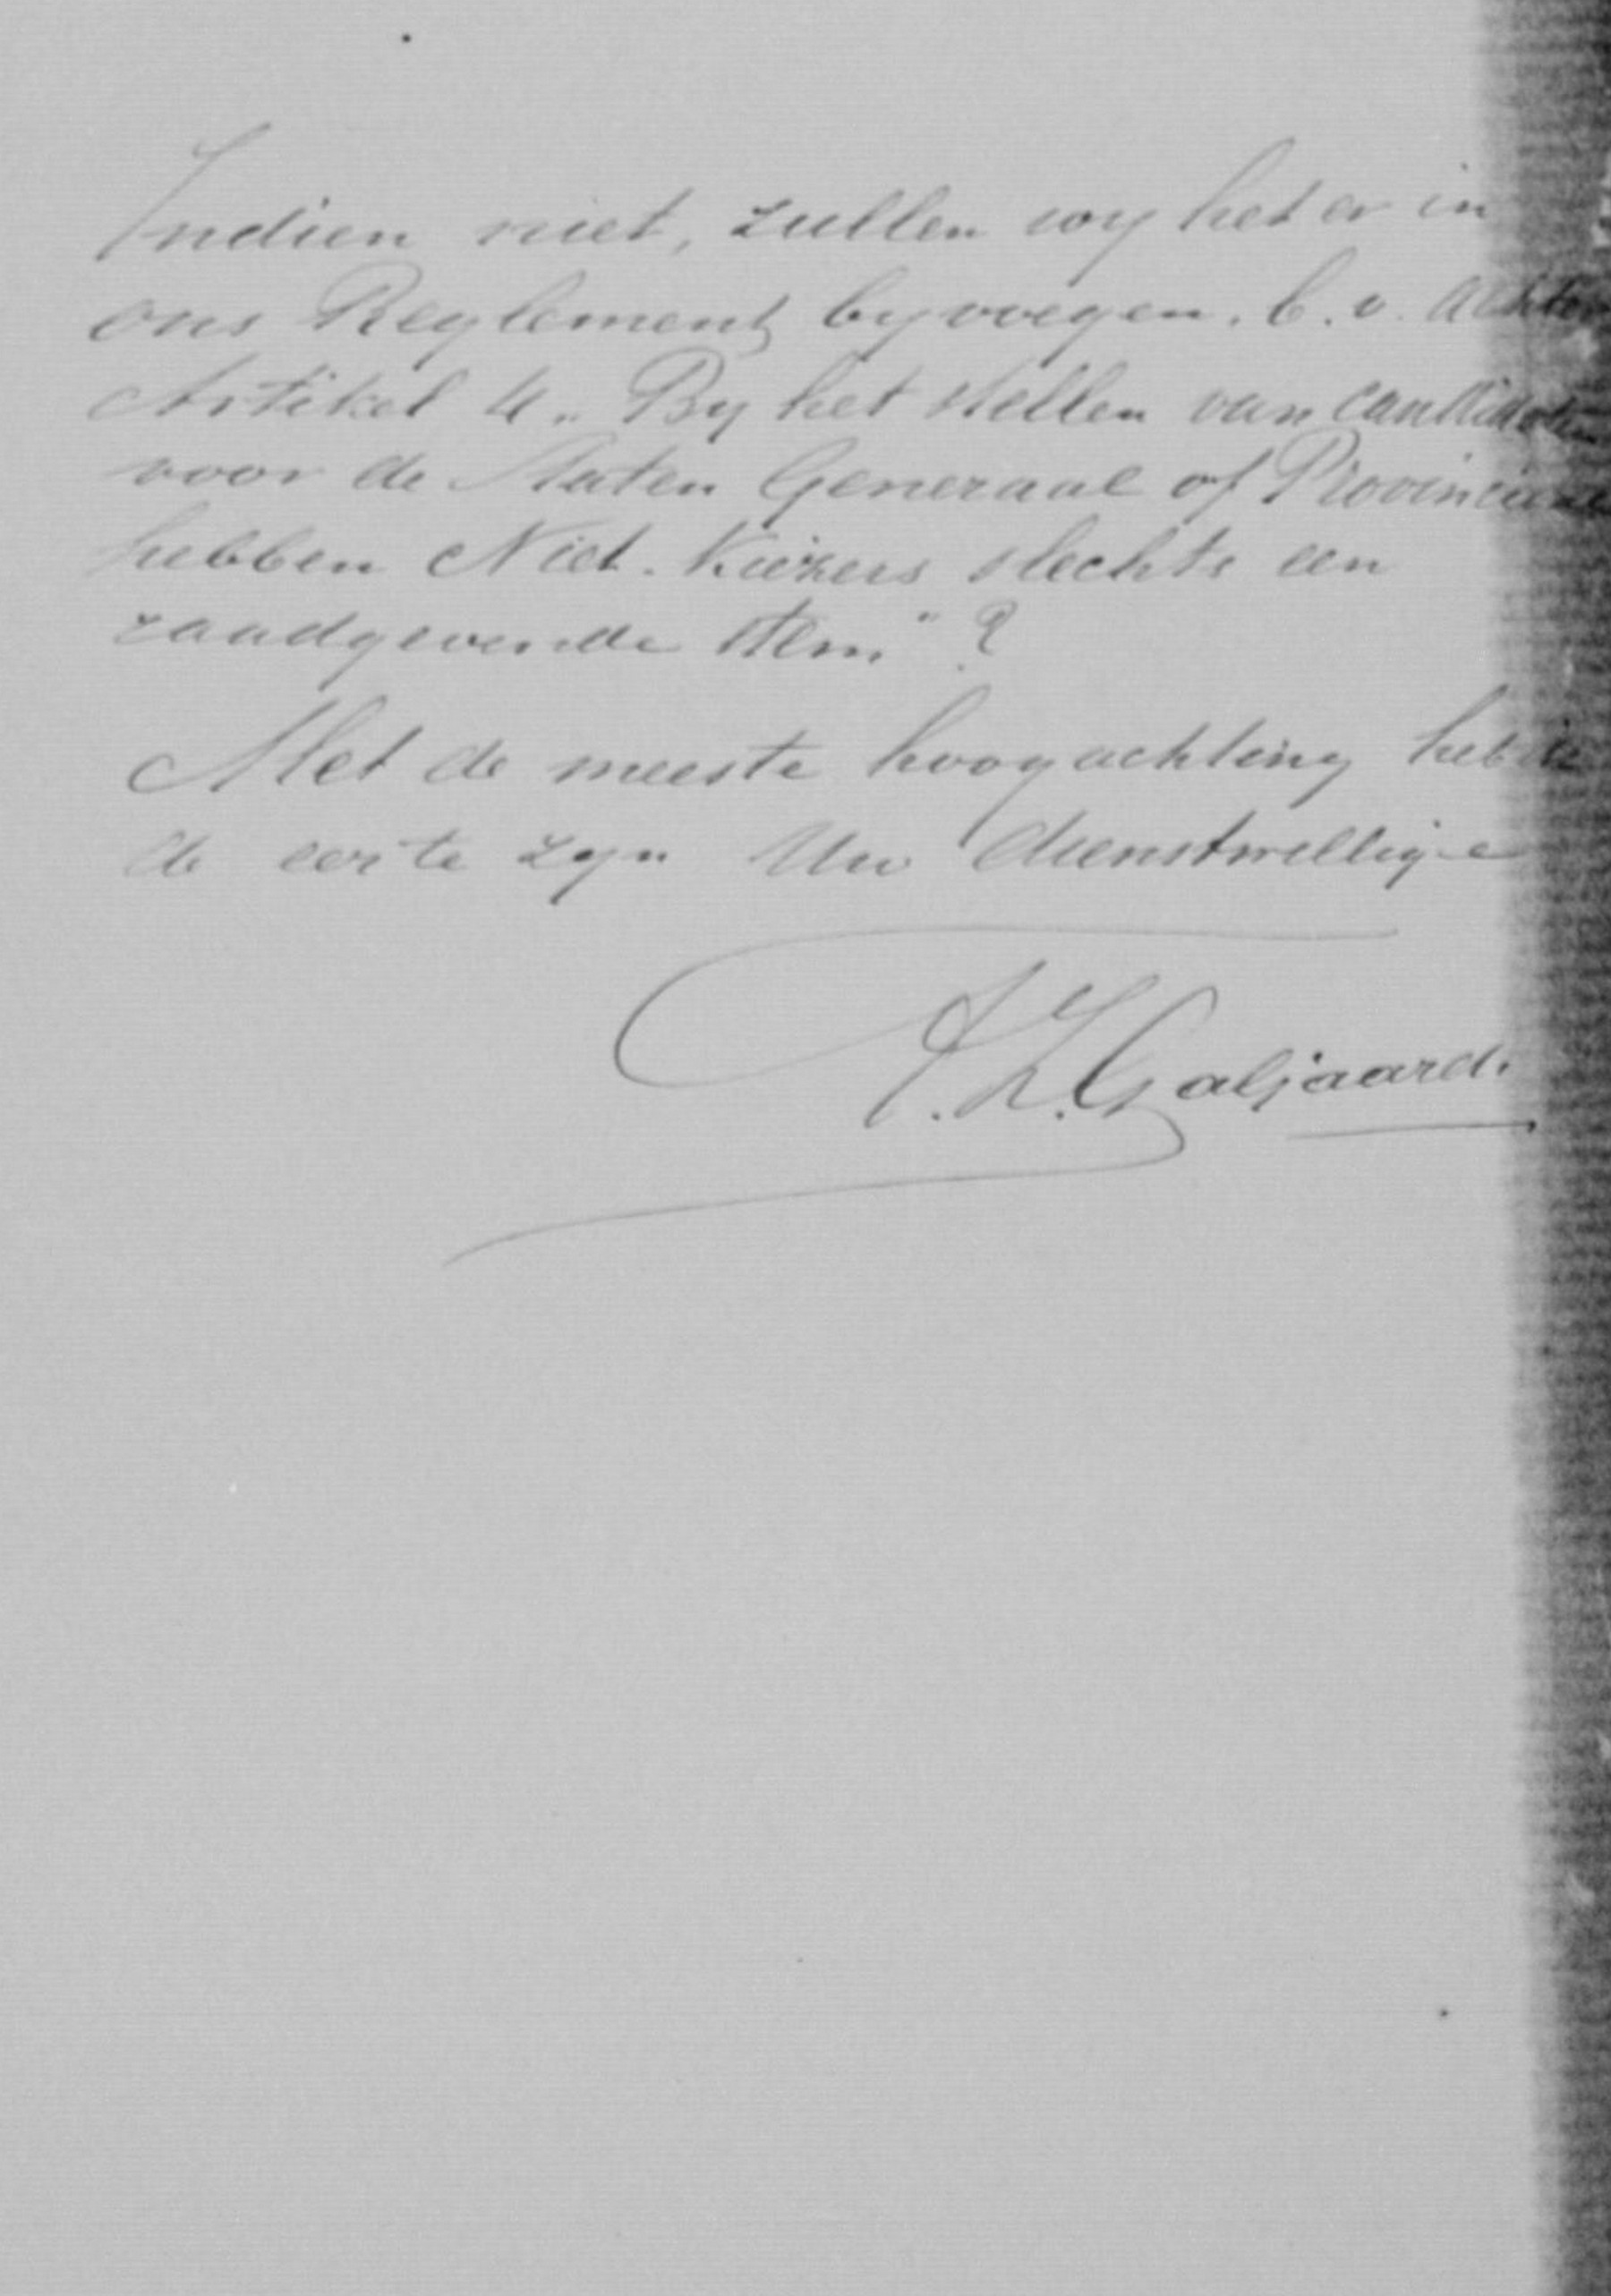 Indien niet, zullen wy het er in
ons Reglement byvoegen. b.v. achter
Artikel 4 „ By het stellen van candidaten
voor de Staten Generaal of Provinciale
hebben Niet-Kiezers slechts een
raadgevende stem" ?
Met de meeste hoogachting heb ik
de eer te zyn Uw dienstwillige
J. Z. Galjaard.